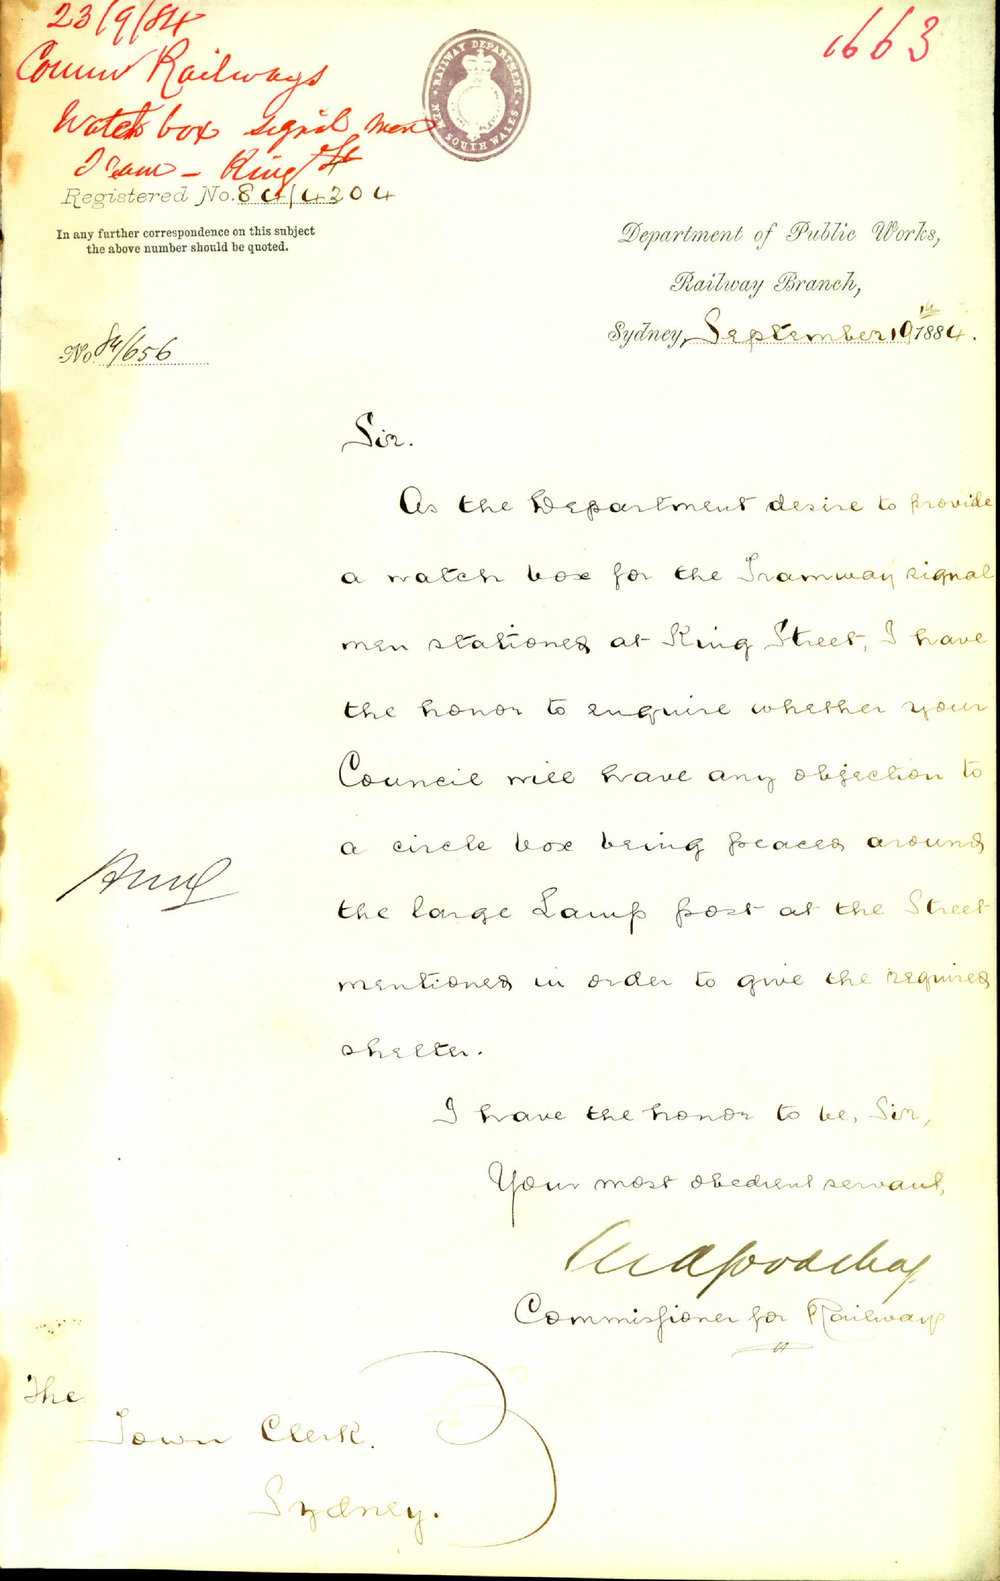 23/9/84
1663
Commr Railways
Watch box signal men
Tram – King St
RAILWAY DEPARTMENT
NEW SOUTH WALES
Registered No. 84/4204
In any further correspondence on this subject
the above number should be quoted.
Department of Public Works,
Railway Branch,
Sydney, September 19th 1884.
No. 84/656
Sir.
As the Department desire to provide
a watch box for the Tramway signal
men stationed at King Street, I have
the honor to enquire whether your
Council will have any objection to
a circle box being placed around
the large Lamp post at the Street
mentioned in order to give the required
shelter.
I have the honor to be, Sir,
Your most obedient servant,
Chas A Goodchap
Commissioner for Railways
The
Town Clerk.
Sydney.